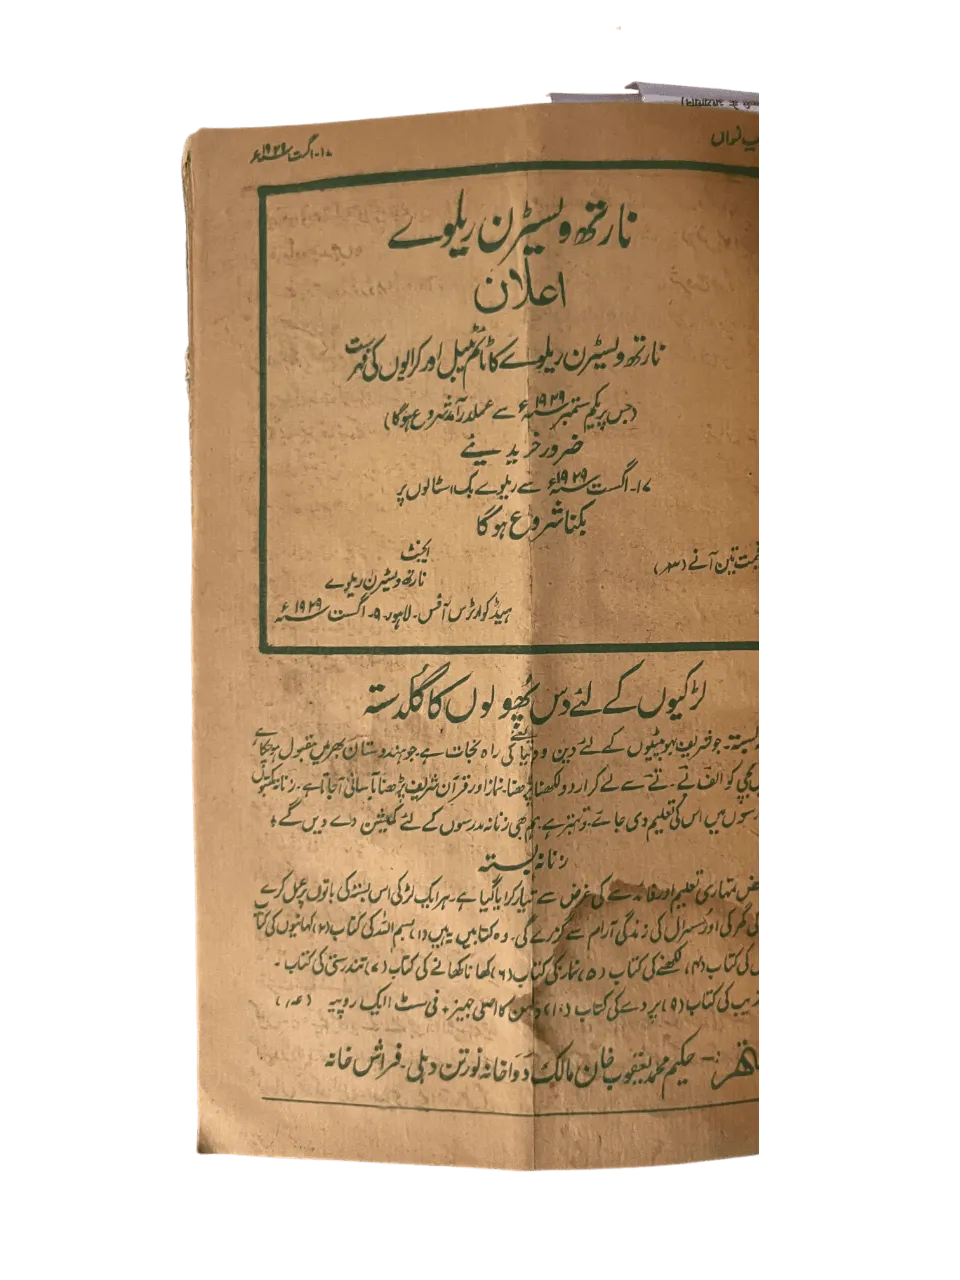 ۱۷-اگست ۱۹۲۹ء
نارتھ ویسٹرن ریلوے
اعلان
نارتھ ویسٹرن ریلوے کا ٹائم ٹیبل اور کرایوں کی فہرست
(جس پر یکم ستمبر ۱۹۲۹ء سے عملدرآمد شروع ہوگا)
ضرور خریدیئے
۱۷-اگست ۱۹۲۹ء سے ریلوے بک اسٹالوں پر
بکنا شروع ہوگا
قیمت تین آنے (۳؍)
ایجنٹ
نارتھ ویسٹرن ریلوے
ہیڈ کوارٹرس آفس-لاہور-۹-اگست ۱۹۲۹ء
لڑکیوں کے لئے دس پھولوں کا گلدستہ
بستہ-جو شریف بہو بیٹیوں کے لئے دین و دنیا کی راہ نجات ہے جو ہندوستان بھر میں مقبول ہوچکا ہے
بچی کو الف بے-تے سے لے کر اردو لکھنا پڑھنا-نماز اور قرآن شریف پڑھنا بآسانی آجاتا ہے-زنانہ
میں اس کی تعلیم دی جائے تو بہتر ہے ہم بھی زنانہ مدرسوں کے لئے کمیشن دے دیں گے؛
زنانہ بستہ
تمہاری تعلیم اور فائدے کی غرض سے تیار کرایا گیا ہے-ہر ایک لڑکی اس بستہ کی باتوں پر عمل کرے
گی اور سسرال کی زندگی آرام سے گزرے گی-وہ کتابیں یہ ہیں (۱) بسم اللہ کی کتاب (۲) کہانیوں کی کتاب
کی کتاب (۴) لکھنے کی کتاب (۵) نماز کی کتاب (۶) کھانا پکانے کی کتاب (۷) تندرستی کی کتاب-
کی کتاب (۹) پردے کی کتاب (۱۰) دلہن کا اصلی جہیز + فی سٹ ایک روپیہ
حکیم محمد یعقوب خان مالک دواخانہ نورتن دہلی-فراش خانہ